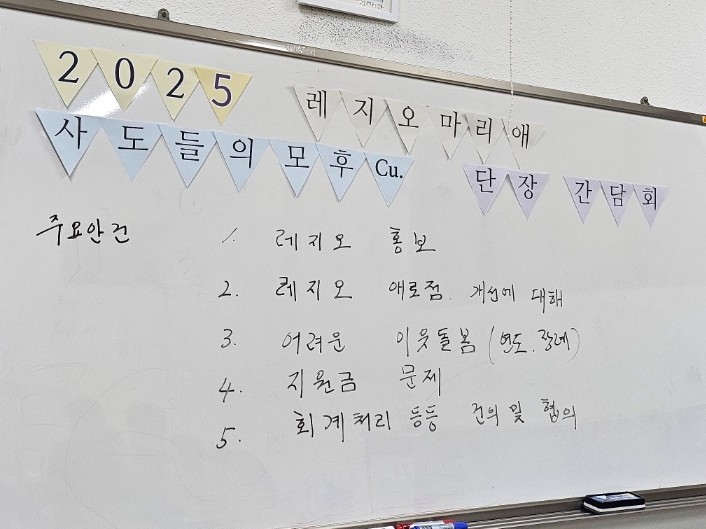 2025 레지오마리애
사도들의모후Cu. 단장 간담회
주요안건 1. 레지오 홍보
2. 레지오 애로점. 개선에 대해
3. 어려운 이웃돌봄 (연도. 장례)
4. 지원금 문제
5. 회계처리 등등 건의 및 협의